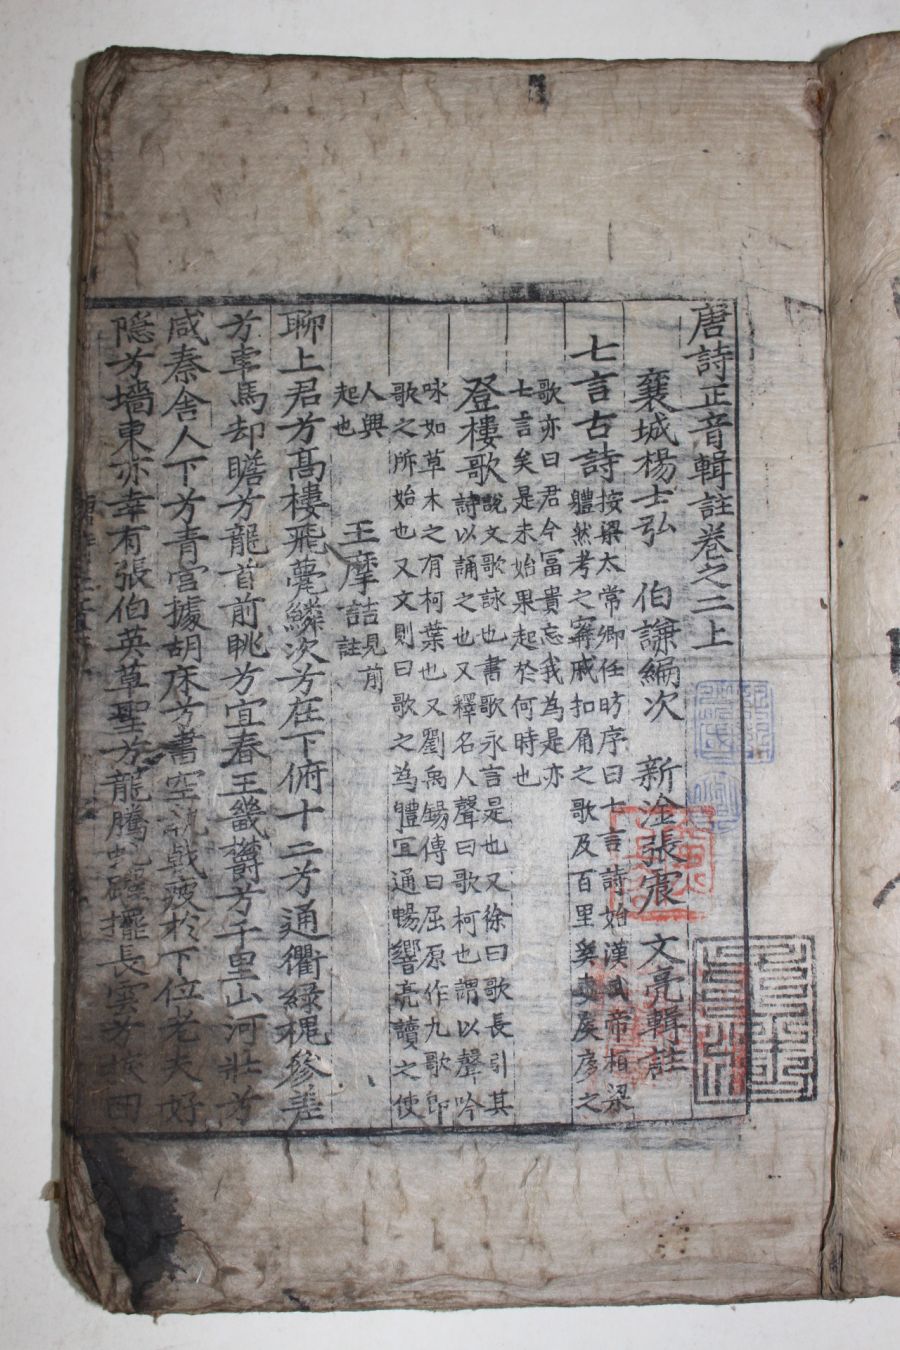 唐詩正音輯註卷之二上
襄城楊士弘 伯謙編次 新淦張震 文亮輯註
七言古詩
按梁太常卿任昉序曰七言詩始漢武帝柏梁
體然考之甯戚扣角之歌及百里奚妻扊扅之
歌亦曰君今富貴忘我為是亦
七言矣是未始果起於何時也
登樓歌
說文歌詠也書歌永言是也又徐曰歌長引其
詩以誦之也又釋名人聲曰歌柯也謂以聲吟
咏如草木之有柯葉也又劉禹錫傳曰屈原作九歌即
歌之所始也又文則曰歌之為體宜通暢響亮讀之使
人興
起也
王摩詰
見前
註
聊上君兮高樓飛甍鱗次兮在下俯十二兮通衢綠槐參差
兮車馬却瞻兮龍首前眺兮宜春王畿欝兮千里山河壯兮
咸秦舍人下兮青宮據胡床兮書空執戟疲於下位老夫好
隱兮墻東亦幸有張伯英草聖兮龍騰虬躍擺長雲兮捩回